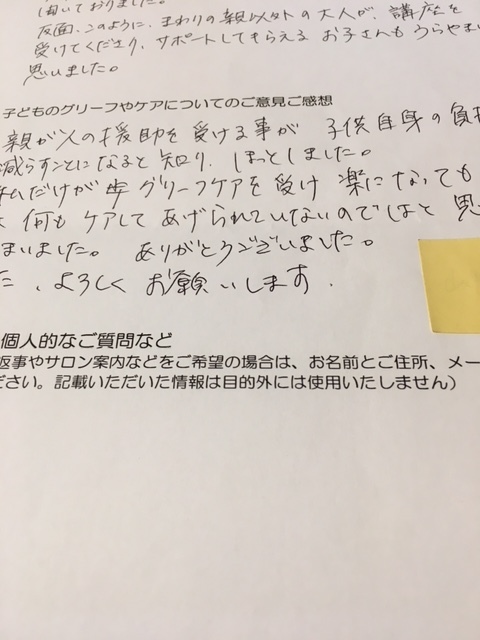 聞いておりました。
反面、このように、まわりの親以外の大人が、講座を
受けてくださり、サポートしてもらえる お子さんもうらやま
思いました。
子どものグリーフやケアについてのご意見ご感想
親が人の援助を受ける事が 子供自身の負担
減らすことになると知り、ほっとしました。
私だけが グリーフケアを受け 楽になっても
何もケアしてあげられていないのではと 思
まいました。 ありがとうございました。
た、よろしく お願いします。
個人的なご質問など
返事やサロン案内などをご希望の場合は、お名前とご住所、メー
ださい。記載いただいた情報は目的外には使用いたしません）